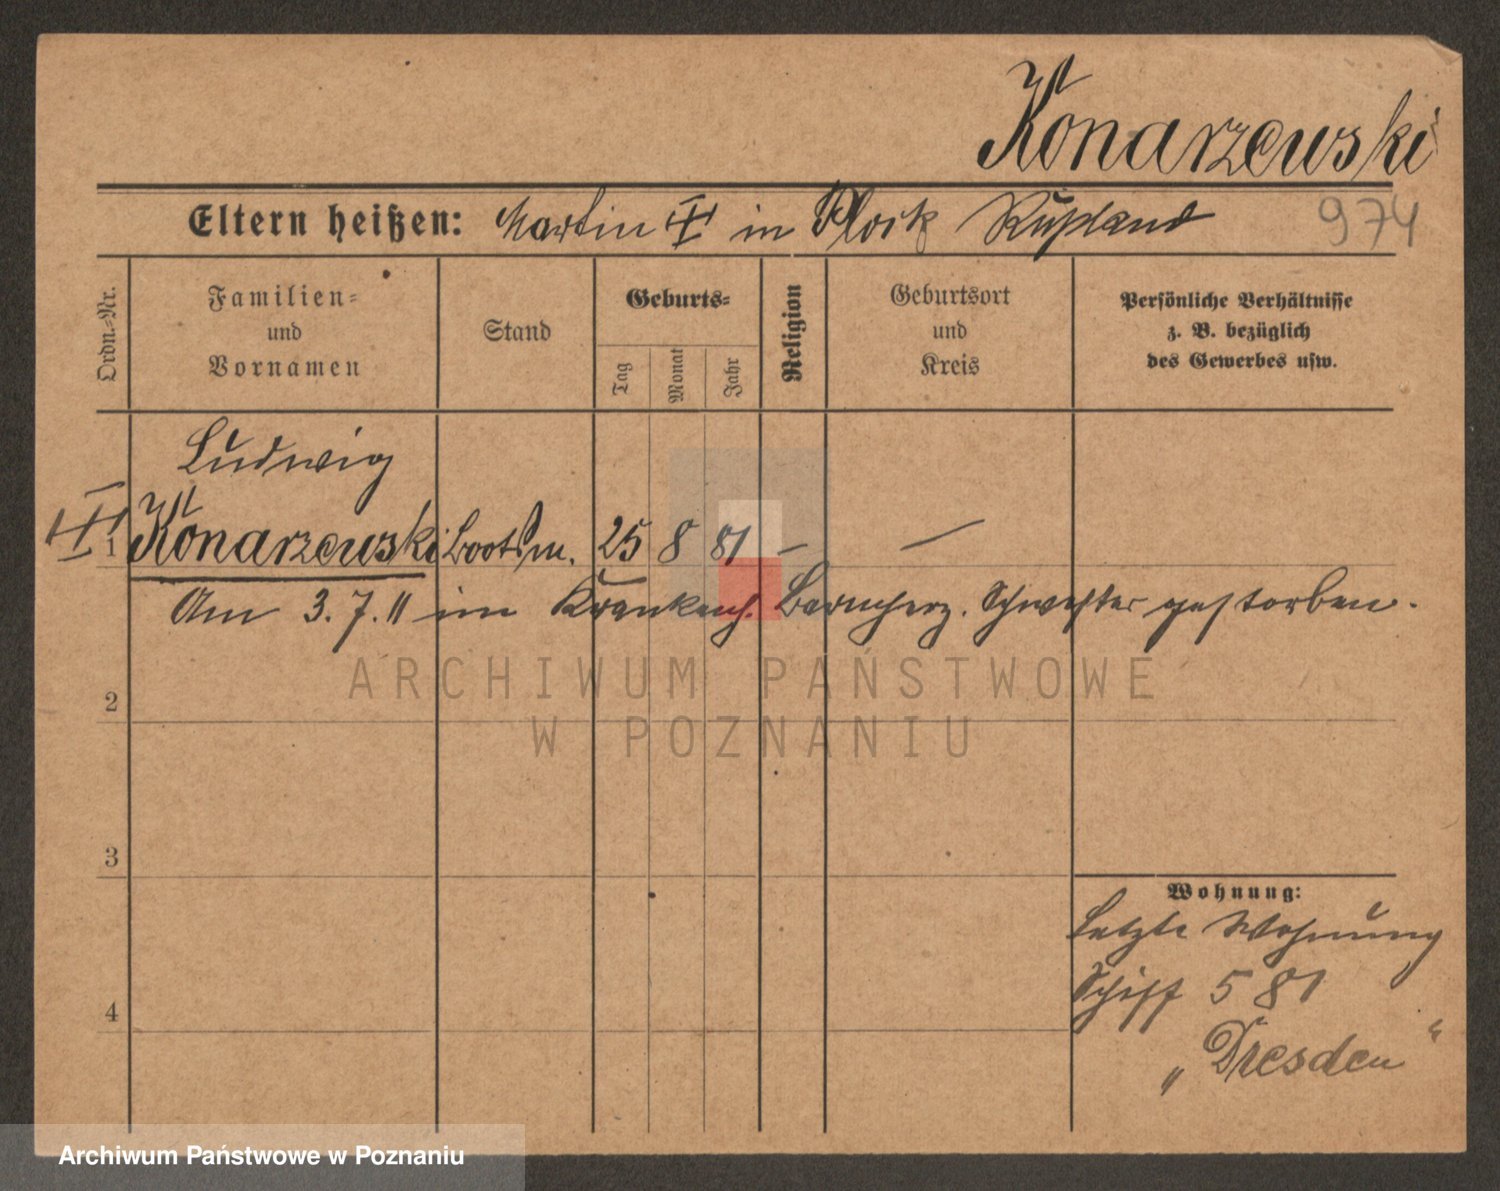 Konarzewski
Eltern heißen: Martin in Plock Rußland 974
Ordn.-Nr.
Familien-
und
Vornamen
Stand
Geburts-
Tag
Monat
Jahr
Religion
Geburtsort
und
Kreis
Persönliche Verhältnisse
z. B. bezüglich
des Gewerbes usw.
Ludwig
1 Konarzewski Bootsm. 25 8 81 – –
Am 3.7.11 im Krankenh. Barmherz. Schwester gestorben.
ARCHIWUM PAŃSTWOWE
W POZNANIU
2
3
4
Wohnung:
Letzte Wohnung
Schiff 581
„Dresden“
Archiwum Państwowe w Poznaniu